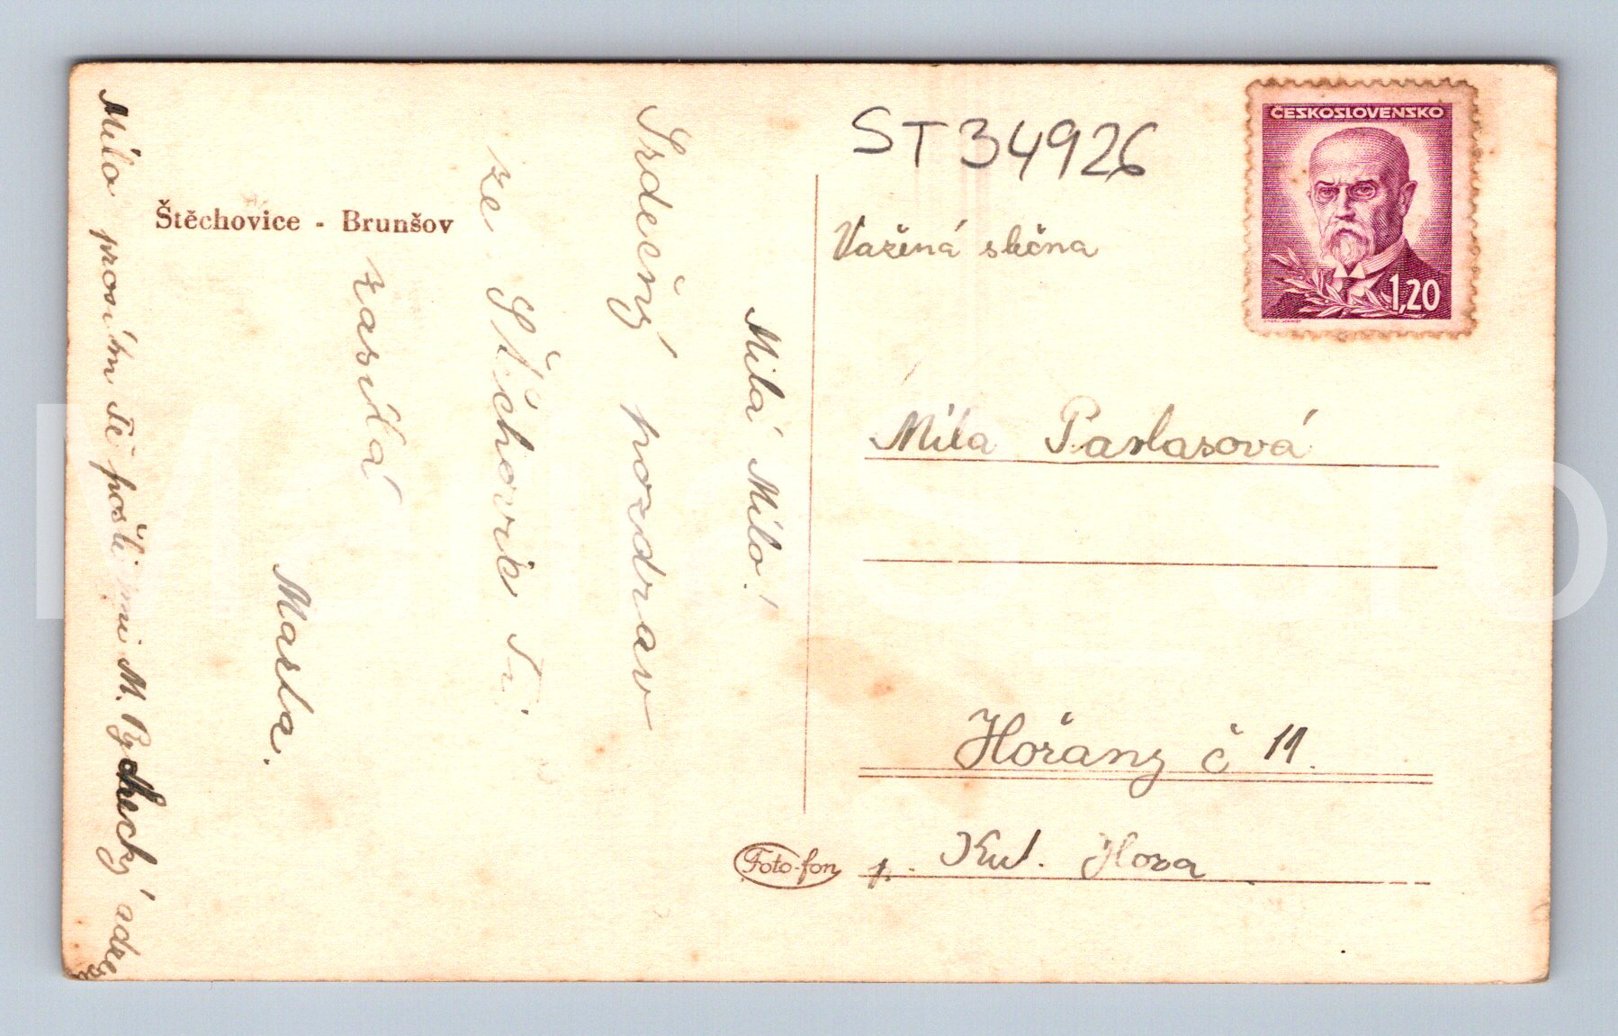 Štěchovice - Brunšov
Milá Mílo!
Srdečný pozdrav
ze Štěchovic Ti
zasílá
Marta.
Mílo prosím Tě pošli mi M. Pychecký adre
ČESKOSLOVENSKO
1,20
ST34926
Vážená slečna
Míla Pavlasová
Hořany č 11.
p. Kut. Hora
Foto-fon